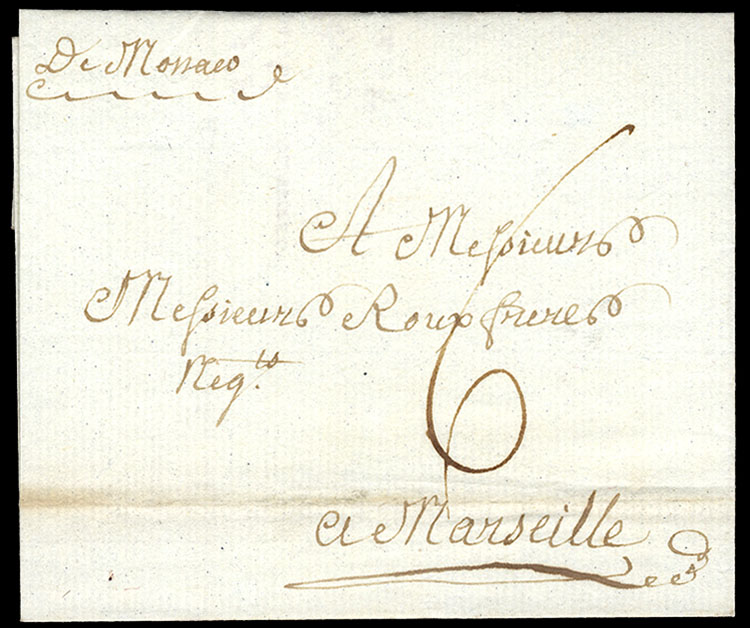 De Monaco
A Messieurs
Messieurs Roux freres
Neg.ts
6
a Marseille